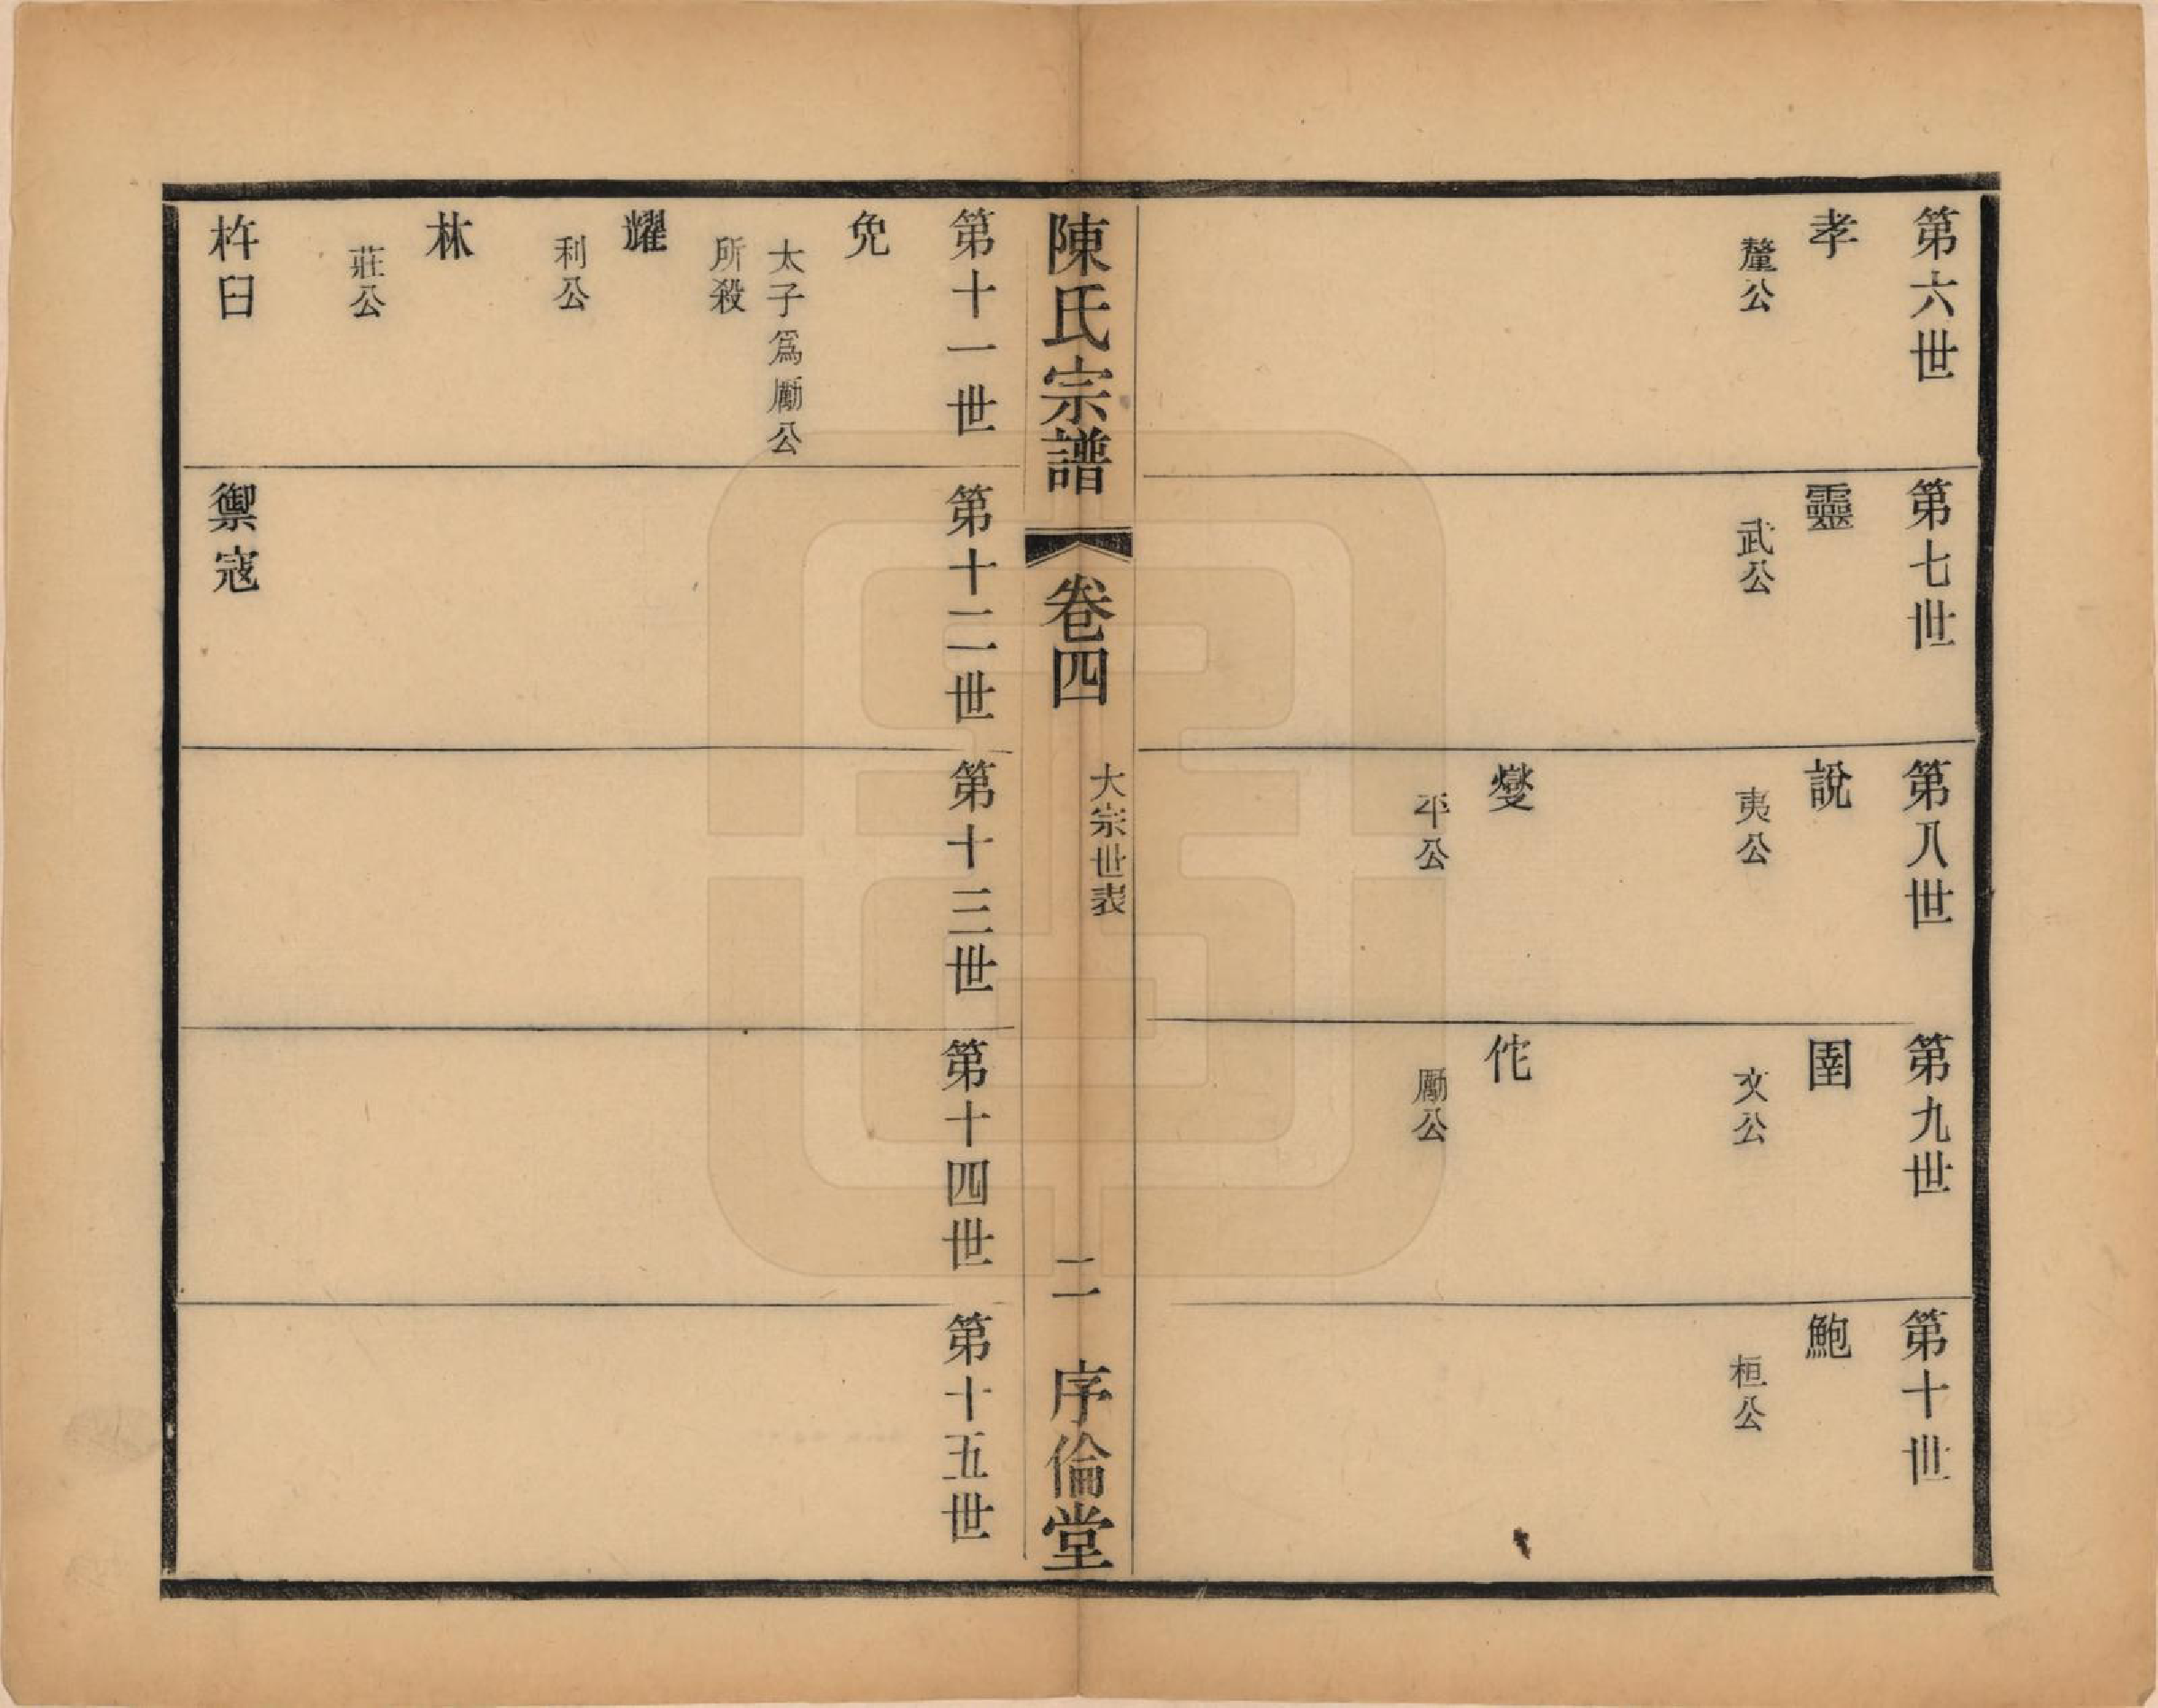 第六世
孝
釐公
第七世
靈
武公
第八世
說
夷公
燮
平公
第九世
圉
文公
佗
厲公
第十世
鮑
桓公
陳氏宗譜
卷四
大宗世表
二
序倫堂
第十一世
免
太子爲厲公
所殺
躍
利公
林
莊公
杵臼
第十二世
禦寇
第十三世
第十四世
第十五世